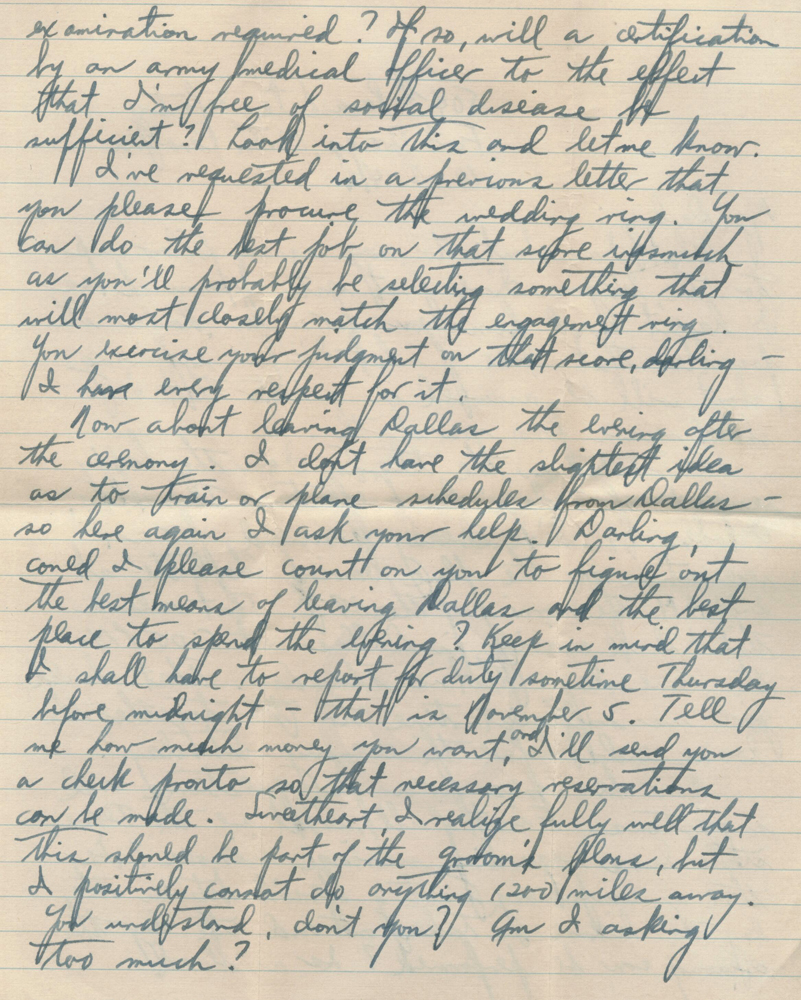 examination required? If so, will a certification
by an army medical officer to the effect
that I'm free of social disease be
sufficient? Look into this and let me know.
I've requested in a previous letter that
you please procure the wedding ring. You
can do the best job on that score inasmuch
as you'll probably be selecting something that
will most closely match the engagement ring.
You exercise your judgment on that score, darling -
I have every respect for it.
Now about leaving Dallas the evening after
the ceremony. I don't have the slightest idea
as to train or plane schedules from Dallas -
so here again I ask your help. Darling,
could I please count on you to figure out
the best means of leaving Dallas and the best
place to spend the evening? Keep in mind that
I shall have to report for duty sometime Thursday
before midnight - that is November 5. Tell
me how much money you want, and I'll send you
a check pronto so that necessary reservations
can be made. Sweetheart, I realize fully well that
this should be part of the groom's plans, but
I positively cannot do anything 1200 miles away.
You understand, don't you? Am I asking
too much?